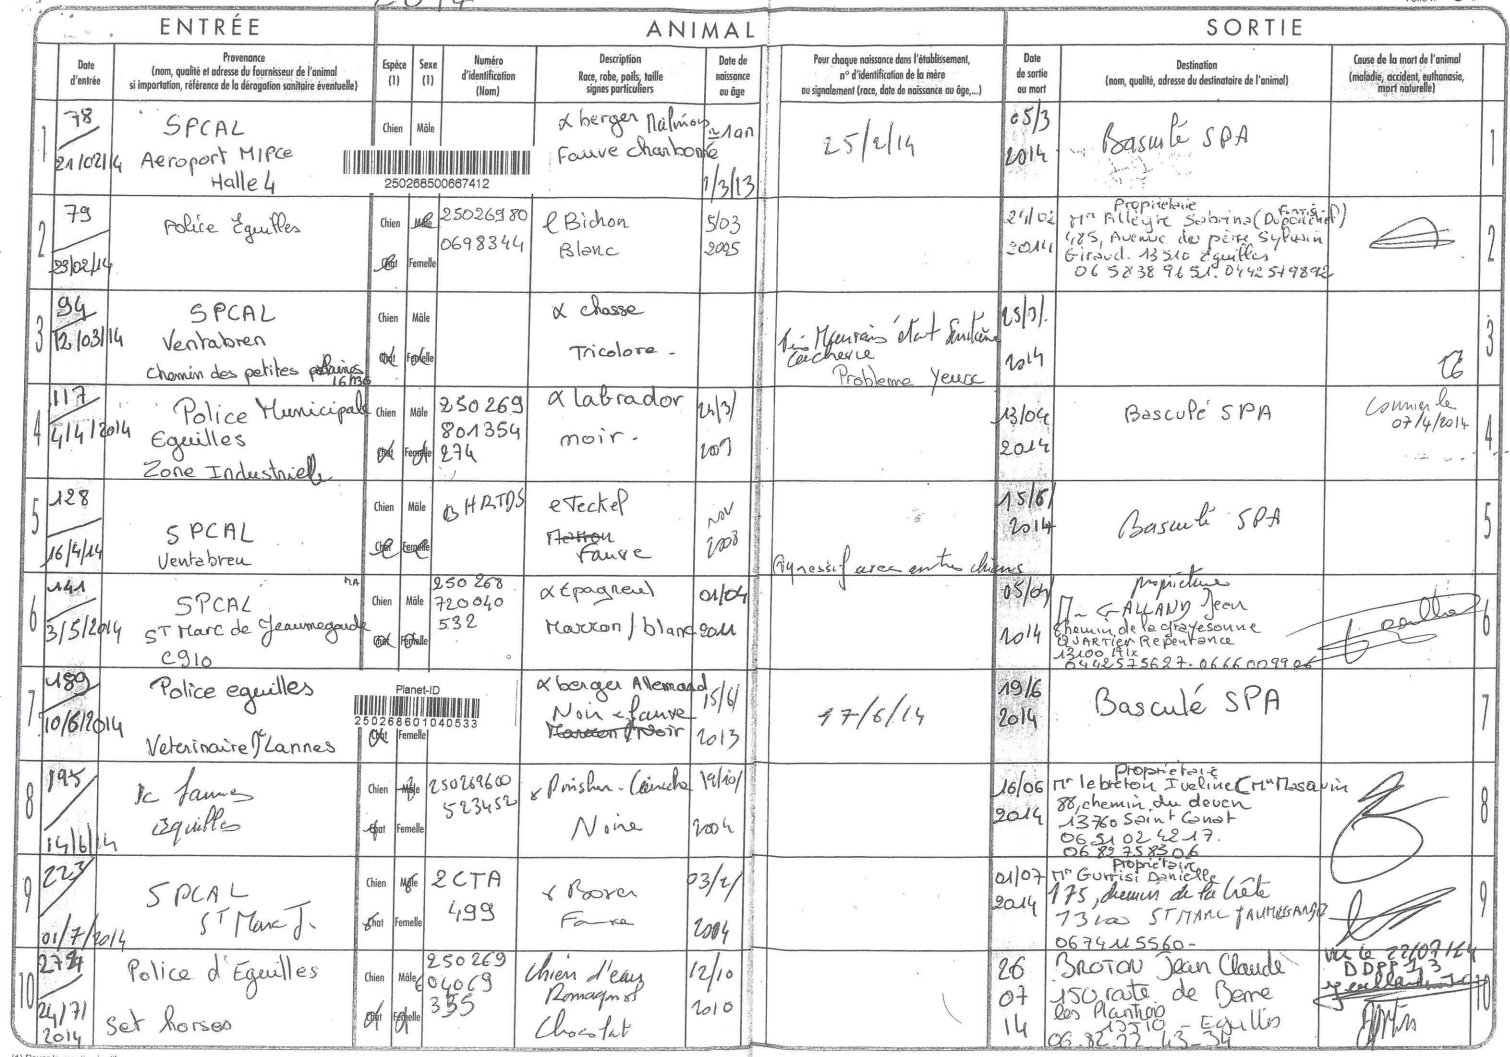 2014
ENTRÉE
ANIMAL
SORTIE
Date d'entrée
Provenance
(nom, qualité et adresse du fournisseur de l'animal
si importation, référence de la dérogation sanitaire éventuelle)
Espèce (1)
Sexe (1)
Numéro d'identification (Nom)
Description
Race, robe, poils, taille
signes particuliers
Date de naissance ou âge
Pour chaque naissance dans l'établissement,
n° d'identification de la mère
ou signalement (race, date de naissance ou âge,...)
Date de sortie ou mort
Destination
(nom, qualité, adresse du destinataire de l'animal)
Cause de la mort de l'animal
(maladie, accident, euthanasie,
mort naturelle)
1
78
21/02/14
SPCAL
Aeroport MIPce
Halle 4
Chien Mâle
250268500667412
berger Malinois
Fauve charbonné
1 an
1/3/13
25/2/14
05/3
2014
Basculé SPA
1
2
79
23/02/14
Police Eguilles
Chien Mâle
Chat Femelle
25026980
0698344
Bichon
Blanc
5/03
2005
24/02
2014
Propriétaire
Mme Allegre Sabrina
485, Avenue du père Sylvain
Giraud. 13510 Eguilles
06 58 38 96 51. 0442519892
2
3
94
12/03/14
SPCAL
Ventabren
Chemin des petites
16h30
Chien Mâle
Chat Femelle
chasse
Tricolore -
Mauvais état Sanitaire
cachexie
Probleme Yeux
25/3/.
2014
3
4
117
4/4/2014
Police Municipale
Eguilles
Zone Industrielle
Chien Mâle
Chat Femelle
250269
801354
274
labrador
noir -
2009
13/04
2014
Basculé SPA
Courrier le
07/4/2014
4
5
128
16/4/14
SPCAL
Ventabren
Chien Mâle
Chat Femelle
Teckel
Marron
Fauve
Nov
2008
Agressif avec autres chiens
15/5/
2014
Basculé SPA
5
6
141
3/5/2014
SPCAL
ST Marc de Jeaumegarde
C910
Chien Mâle
Chat Femelle
250 268
720040
532
Epagneul
Marron / blanc
01/04
2011
05/05/
2014
propriétaire
GALLAND Jean
Chemin de la grayesonne
QUARTIER Repentance
13100 Aix
0442575627. 0666009906
6
7
189
10/6/2014
Police eguilles
Veterinaire Lannes
Planet-ID
250268601040533
Chat Femelle
berger Allemand
Noir fauve
Marron / Noir
15/6/
2013
17/6/14
19/6
2014
Basculé SPA
7
8
195
14/6/14
Eguilles
Chien Mâle
Chat Femelle
250269600
523452
Noire
19/10/
2004
16/06
2014
Propriétaire
Mr lebreton Iveline
88, chemin du deven
13760 Saint Canat
06 51 02 42 17.
06 89 75 83 06
8
9
223
01/7/2014
SPCAL
ST Marc J.
Chien Mâle
Chat Femelle
2CTA
499
Boxer
Fauve
03/2/
2004
01/07
2014
Propriétaire
Danielle
175, chemin de la Crête
13100 ST MARC JAUMEGARDE
0674115560-
9
10
24/7/
2014
Police d'Eguilles
Set horses
Chien Mâle
Chat Femelle
250269
604069
355
Chien d'eau
Romagnol
Chocolat
12/10
2010
26
07
14
BROTON Jean Claude
150 route de Berre
les Plantiers
13510 - Eguilles
06.82.72 43-34
vu le 22/07/14
DDPP 13
10